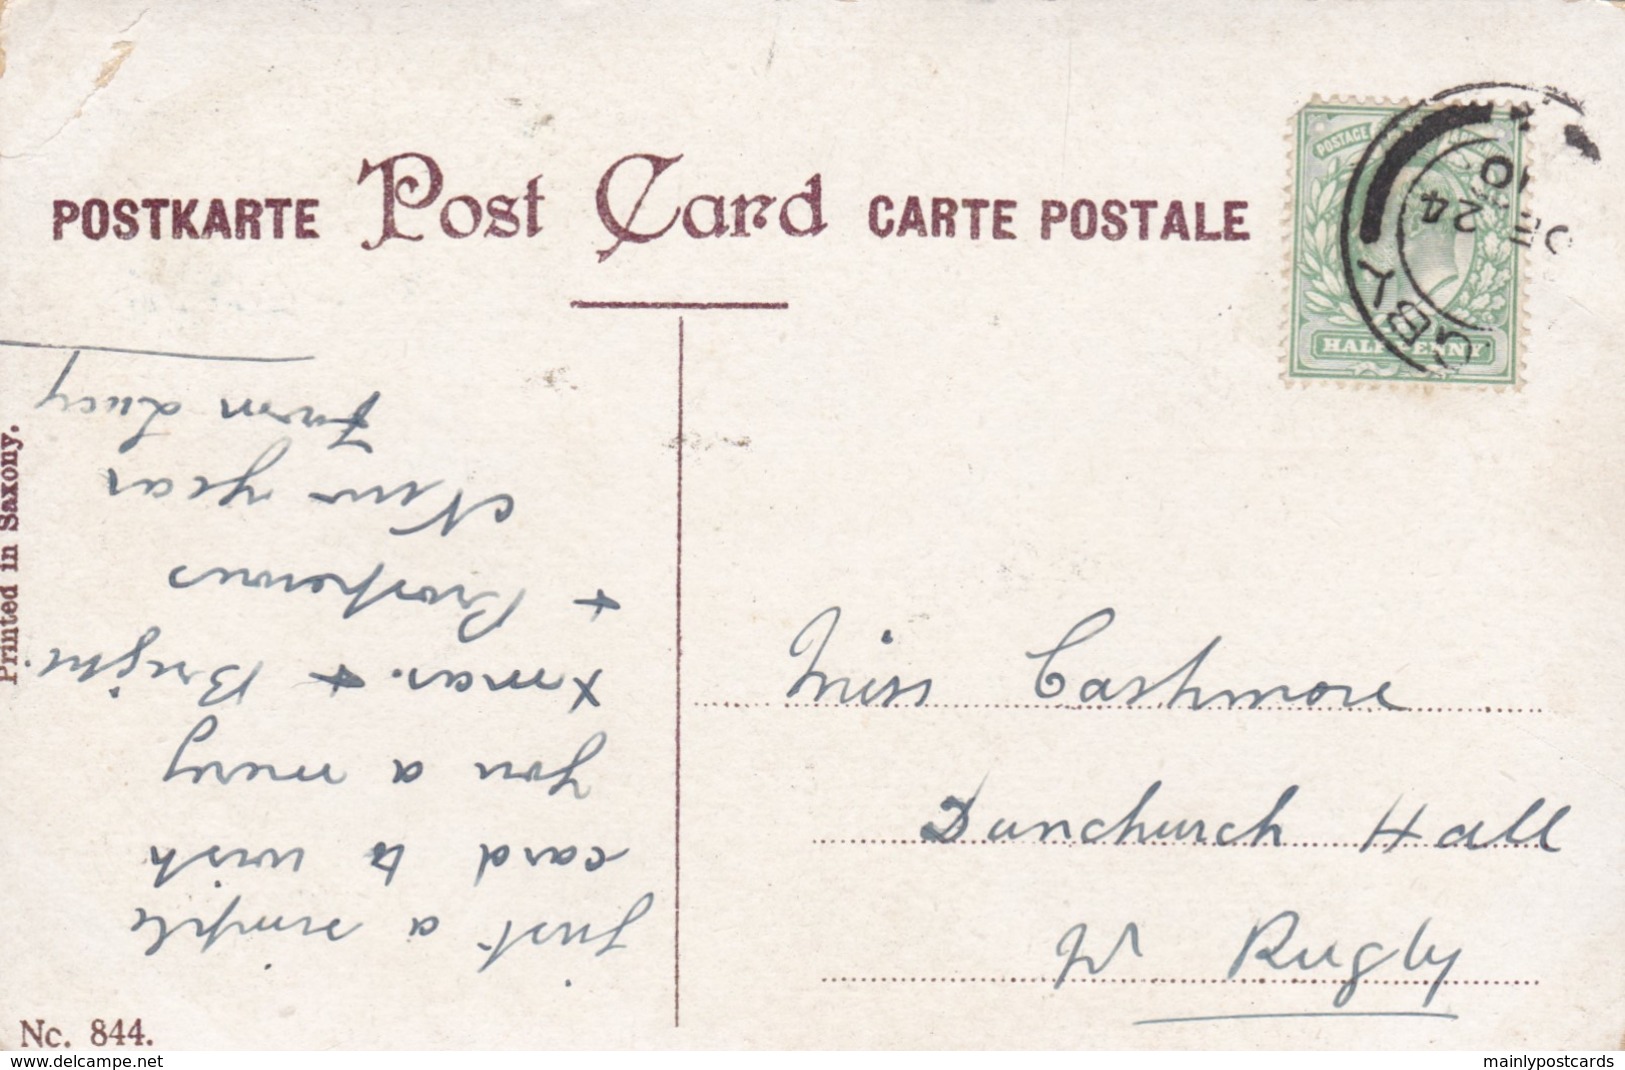 POSTKARTE Post Card CARTE POSTALE
POSTAGE
HALFPENNY
GBY
DE 24
10
Just a simple
card to wish
you a merry
xmas. + Bright.
+ Prosperous
New year
From Lucy
Miss Cashmore
Dunchurch Hall
Nr Rugby
Printed in Saxony.
No. 844.
www.delcampe.net
mainlypostcards